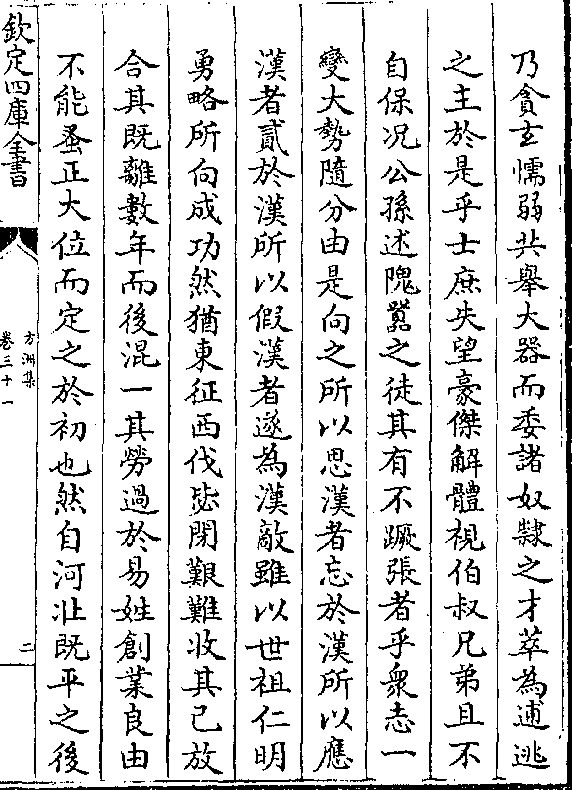 乃貪玄懦弱共舉大器而委諸奴隸之才萃為逋逃
之主於是乎士庶失望豪傑解體視伯叔兄弟且不
自保况公孫述隗囂之徒其有不蹶張者乎衆志一
變大勢隨分由是向之所以思漢者忘於漢所以應
漢者貳於漢所以假漢者遂為漢敵雖以世祖仁明
勇略所向成功然猶東征西伐毖閉艱難收其已放
合其既離數年而後混一其勞過於易姓創業良由
不能蚤正大位而定之於初也然自河北既平之後
欽定四庫全書
方洲集
卷三十一
二